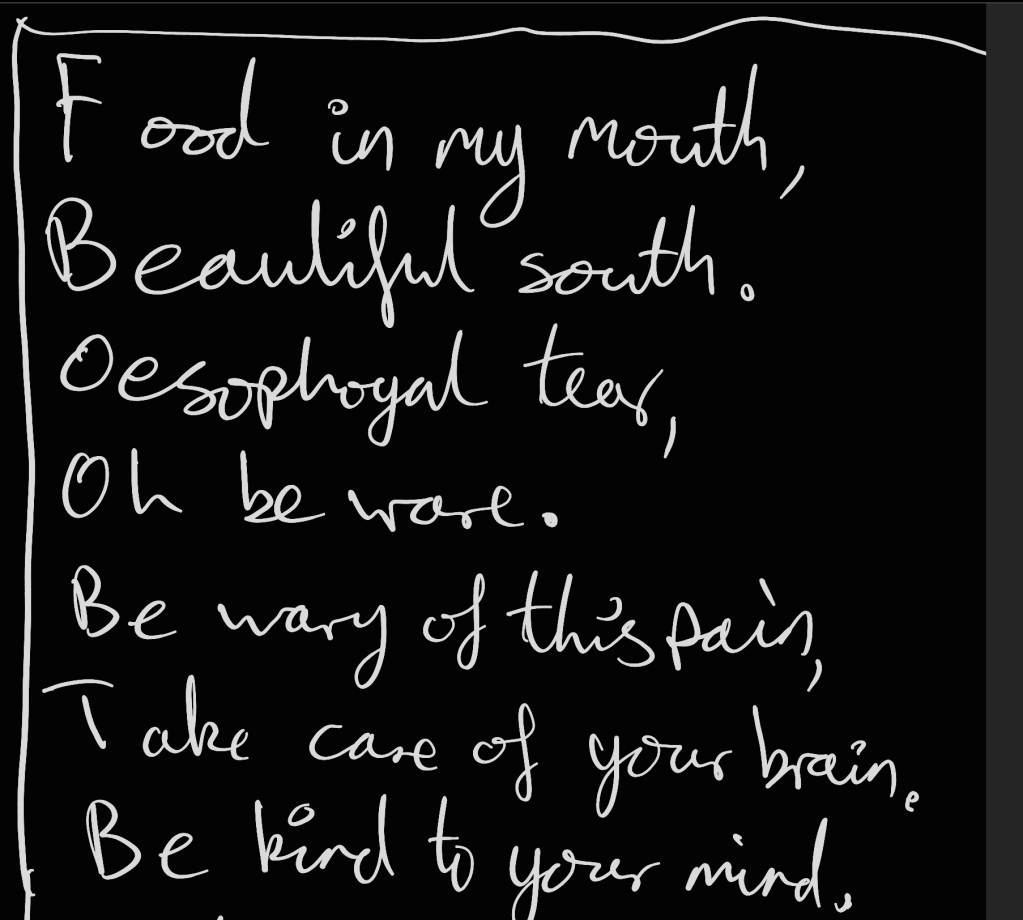 Food in my mouth,
Beautiful south.
Oesophogal tear,
Oh be ware.
Be wary of this pain,
Take care of your brain.
Be kind to your mind.